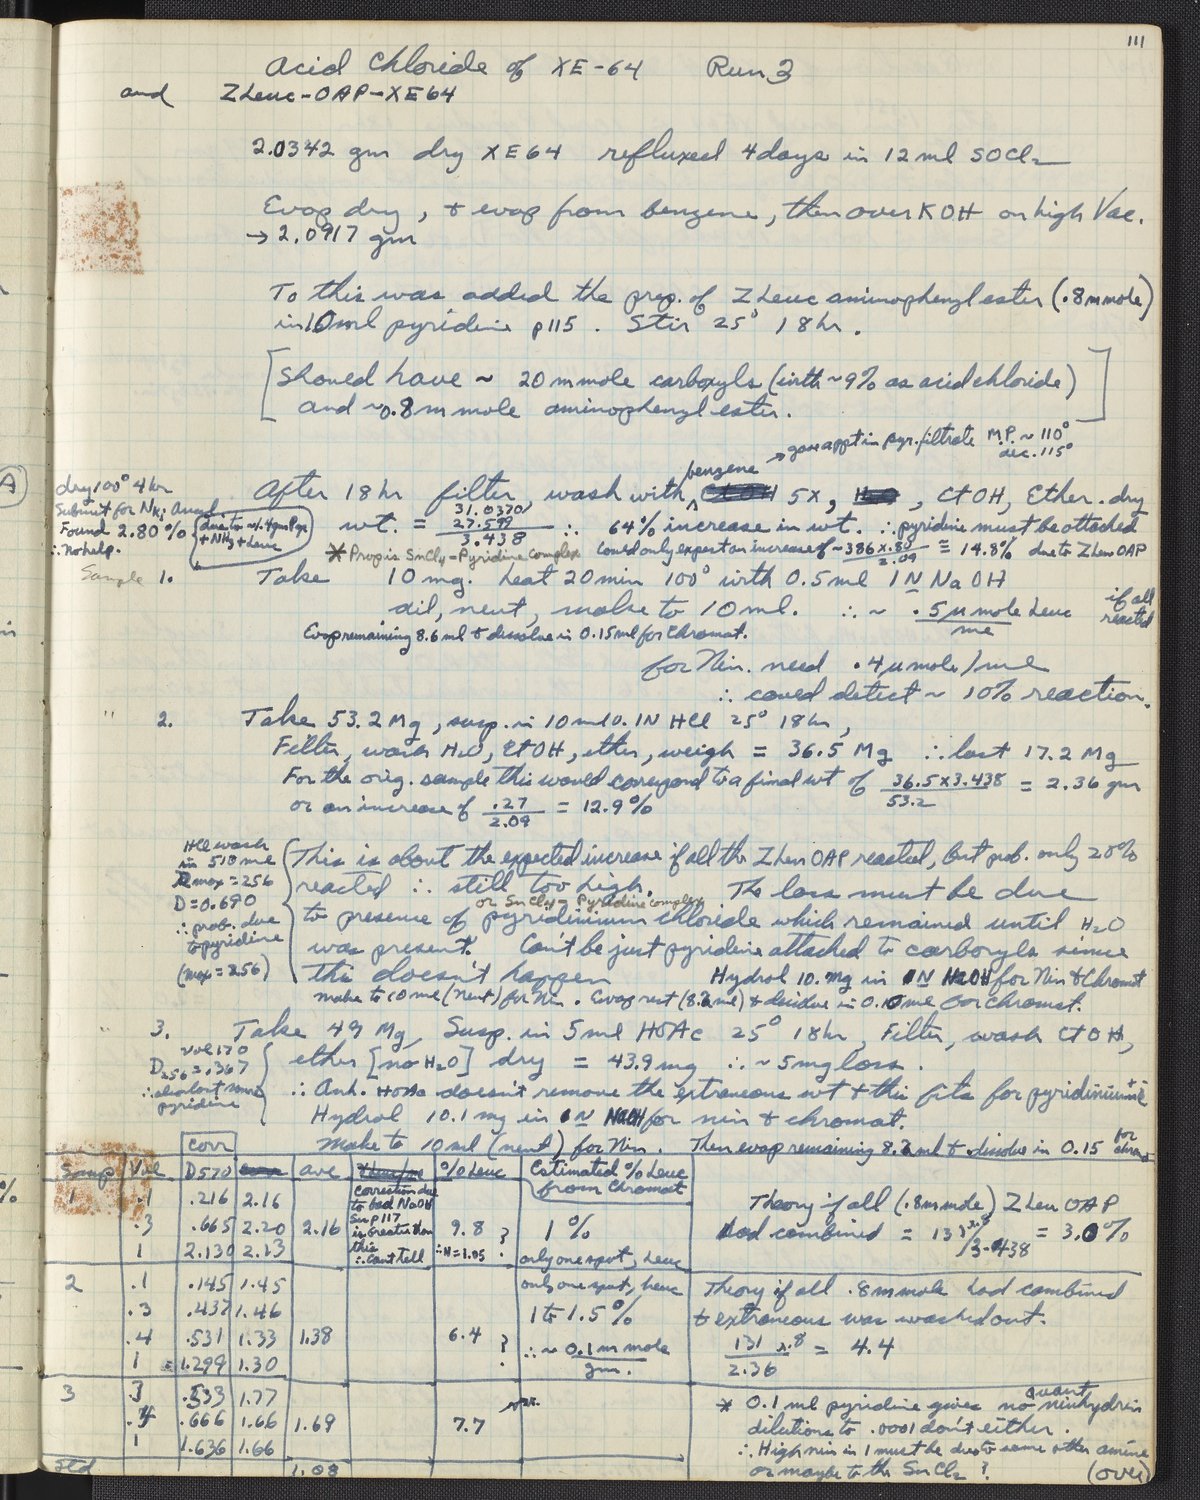 111
Acid Chloride of XE-64 Run 3
and ZLeuc-OAP-XE64
2.0342 gm dry XE64 refluxed 4 days in 12 ml SOCl2
Evap dry, & evap from benzene, then over KOH on high Vac.
→ 2.0917 gm
To this was added the prep. of ZLeuc aminophenylester (.8 mmole)
in 10 ml pyridine p115. Stir 25° 18 hr.
[Should have ~ 20 mmole carboxyls (with ~9% as acid chloride)
and ~0.8 mmole aminophenylester.]
→ gave a ppt in pyr. filtrate M.P. ~ 110°
dec. 115°
benzene
After 18 hr filter, wash with EtOH 5X, H2O, EtOH, Ether. dry
wt. = 31.0370 / 27.599 / 3.438 ∴ 64% increase in wt. ∴ pyridine must be attached
* Prop is SnCl4-Pyridine Complex Could only expect an increase of ~ 386 x .80 / 2.09 = 14.8% due to ZLeu OAP
dry 100° 4 hr
Submit for N
Found 2.80% {due to
+ NH3 + Leuc
∴ No help.
Sample 1. Take 10 mg. heat 20 min 100° with 0.5 ml 1N NaOH
dil, neut, make to 10 ml. ∴ ~ .5 µmole Leuc / ml if all reacted
Evap remaining 8.6 ml & dissolve in 0.15 ml for Chromat.
for Nin. need .4 µmole/ml
∴ could detect ~ 10% reaction.
" 2. Take 53.2 Mg, susp. in 10 ml 0.1N HCl 25° 18 hr,
Filter, wash H2O, EtOH, ether, weigh = 36.5 Mg ∴ lost 17.2 Mg
For the orig. sample this would correspond to a final wt of 36.5 x 3.438 / 53.2 = 2.36 gm
or an increase of .27 / 2.09 = 12.9%
HCl wash
in 510 ml
max = 256
D = 0.690
∴ prob. due
to pyridine
(max = 256)
This is about the expected increase if all the ZLeu OAP reacted, but prob. only 20%
reacted ∴ still too high. The loss must be due
or SnCl4-Pyridine complex
to presence of pyridinium chloride which remained until H2O
was present. Can't be just pyridine attached to carboxyls since
this doesn't happen Hydrol 10. mg in 1N NaOH for Nin & Chromat
make to 10 ml (neut) for Nin. Evap rest (8.2 ml) & dissolve in 0.10 ml for chromat.
" 3. Take 49 Mg, Susp. in 5 ml HOAc 25° 18 hr, Filter, wash EtOH,
ether [no H2O] dry = 43.9 mg ∴ ~ 5 mg loss.
vol 170
D256 = .367
∴ almost none
pyridine
∴ Anh. HOAc doesn't remove the extraneous wt & this fits for pyridinium
Hydrol 10.1 mg in 1N NaOH for nin & chromat.
Make to 10 ml (neut) for Nin. Then evap remaining 8.2 ml & dissolve in 0.15 for chrom
corr
Samp Vol D570 ave % Leuc Estimated % Leuc from Chromat
1 .1 .216 2.16
.3 .665 2.20 2.16 9.8 ? 1%
1 2.130 2.13 ∴ N = 1.05 only one spot, Leuc
Correction due
to bad NaOH
See p 117
is greater than
this
∴ Can't tell
Theory if all (.8 mmole) ZLeu OAP
had combined = 131 x .8 / 3.438 = 3.0%
2 .1 .145 1.45 only one spot, Leuc
.3 .437 1.46 1 to 1.5%
.4 .531 1.33 1.38 6.4 ? ∴ ~ 0.1 m mole / gm.
1 1.299 1.30
Theory if all .8 mmole had combined
& extraneous was washed out.
131 x .8 / 2.36 = 4.4
3 .3 .533 1.77
.4 .666 1.66 1.69 7.7
1 1.636 1.66
Std 1.08
* 0.1 ml pyridine gives no quant ninhydrin
dilutions to .0001 don't either.
∴ High nin in 1 must be due to some other amine
or maybe to the SnCl2?
(over)